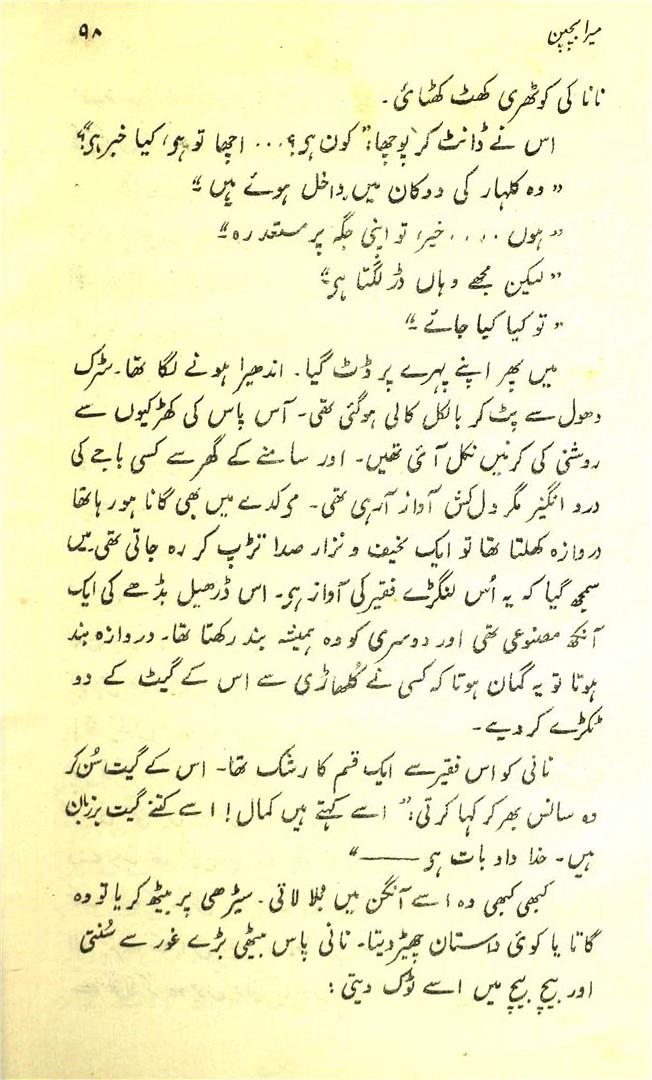 میرا بچپن ۹۸
نانا کی کوٹھری کھٹ کھٹائی۔
اس نے ڈانٹ کر پوچھا: ”کون ہی؟... اچھا تو ہو، کیا خبر ہی؟“
”وہ کلہار کی دوکان میں داخل ہوئے ہیں“
”ہوں .... خیر! تو اپنی جگہ پر مستعد رہ“
”لیکن مجھے وہاں ڈر لگتا ہی“
”تو کیا کیا جائے“
میں پھر اپنے پہرے پر ڈٹ گیا۔ اندھیرا ہونے لگا تھا۔ سڑک
دھول سے پٹ کر بالکل کالی ہوگئی تھی۔ آس پاس کی کھڑکیوں سے
روشنی کی کرنیں نکل آئی تھیں۔ اور سامنے کے گھر سے کسی باجے کی
درد انگیز مگر دل کش آواز آرہی تھی۔ مو کدے میں بھی گانا ہو رہا تھا
دروازہ کھلتا تھا تو ایک نحیف و نزار صدا تڑپ کر رہ جاتی تھی۔ میں
سمجھ گیا کہ یہ اُس لنگڑے فقیر کی آواز ہی۔ اس ڈرھیل بڈھے کی ایک
آنکھ مصنوعی تھی اور دوسری کو وہ ہمیشہ بند رکھتا تھا۔ دروازہ بند
ہوتا تو یہ گمان ہوتا کہ کسی نے کُلھاڑی سے اس کے گیٹ کے دو
ٹکڑے کر دیے۔
نانی کو اس فقیر سے ایک قسم کا رشک تھا۔ اس کے گیت سُن کر
وہ سانس بھر کر کہا کرتی: ”اسے کہتے ہیں کمال! اسے کتنے گیت برزبان
ہیں۔ خدا داد بات ہی ——“
کبھی کبھی وہ اسے آنگن میں بُلا لاتی۔ سیڑھی پر بیٹھ کر یا تو وہ
گاتا یا کوئی داستان چھیڑ دیتا۔ نانی پاس بیٹھی بڑے غور سے سُنتی
اور بیچ بیچ میں اسے ٹوک دیتی: